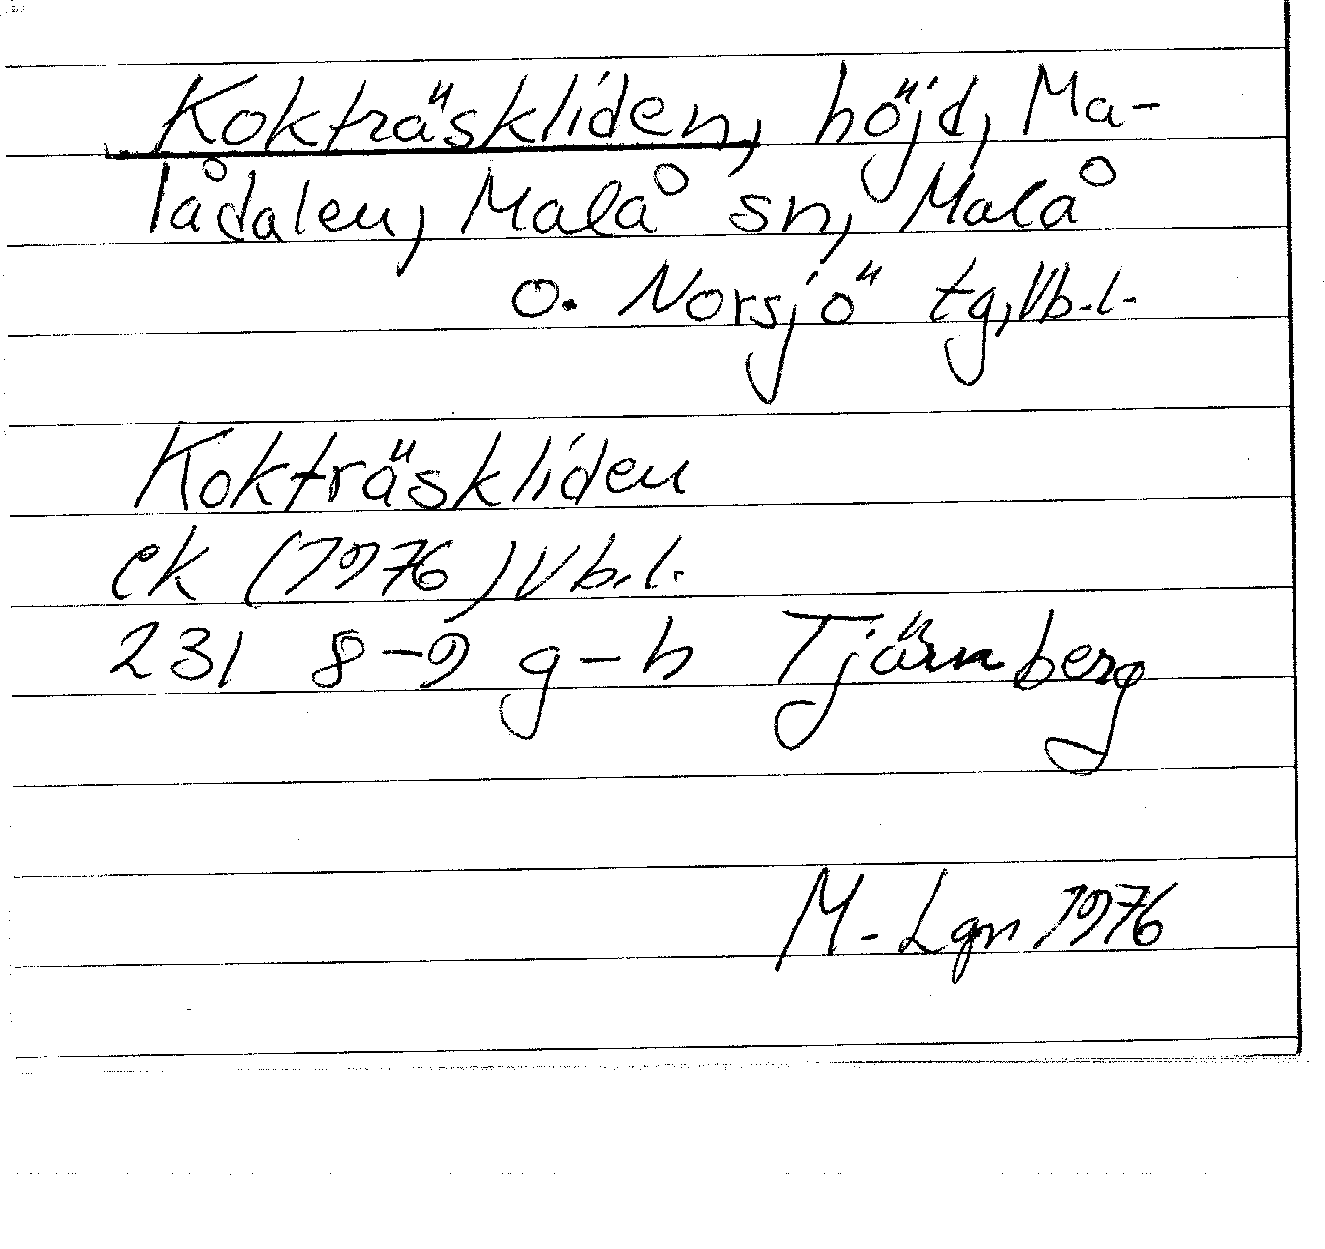 Kokträskliden, höjd, Ma-
lådalen, Malå sn, Malå
o. Norsjö tg, Vb.l.
Kokträskliden
ek (1976) Vb.l.
231 8-9 g-h Tjärnberg
M. Lgn 1976